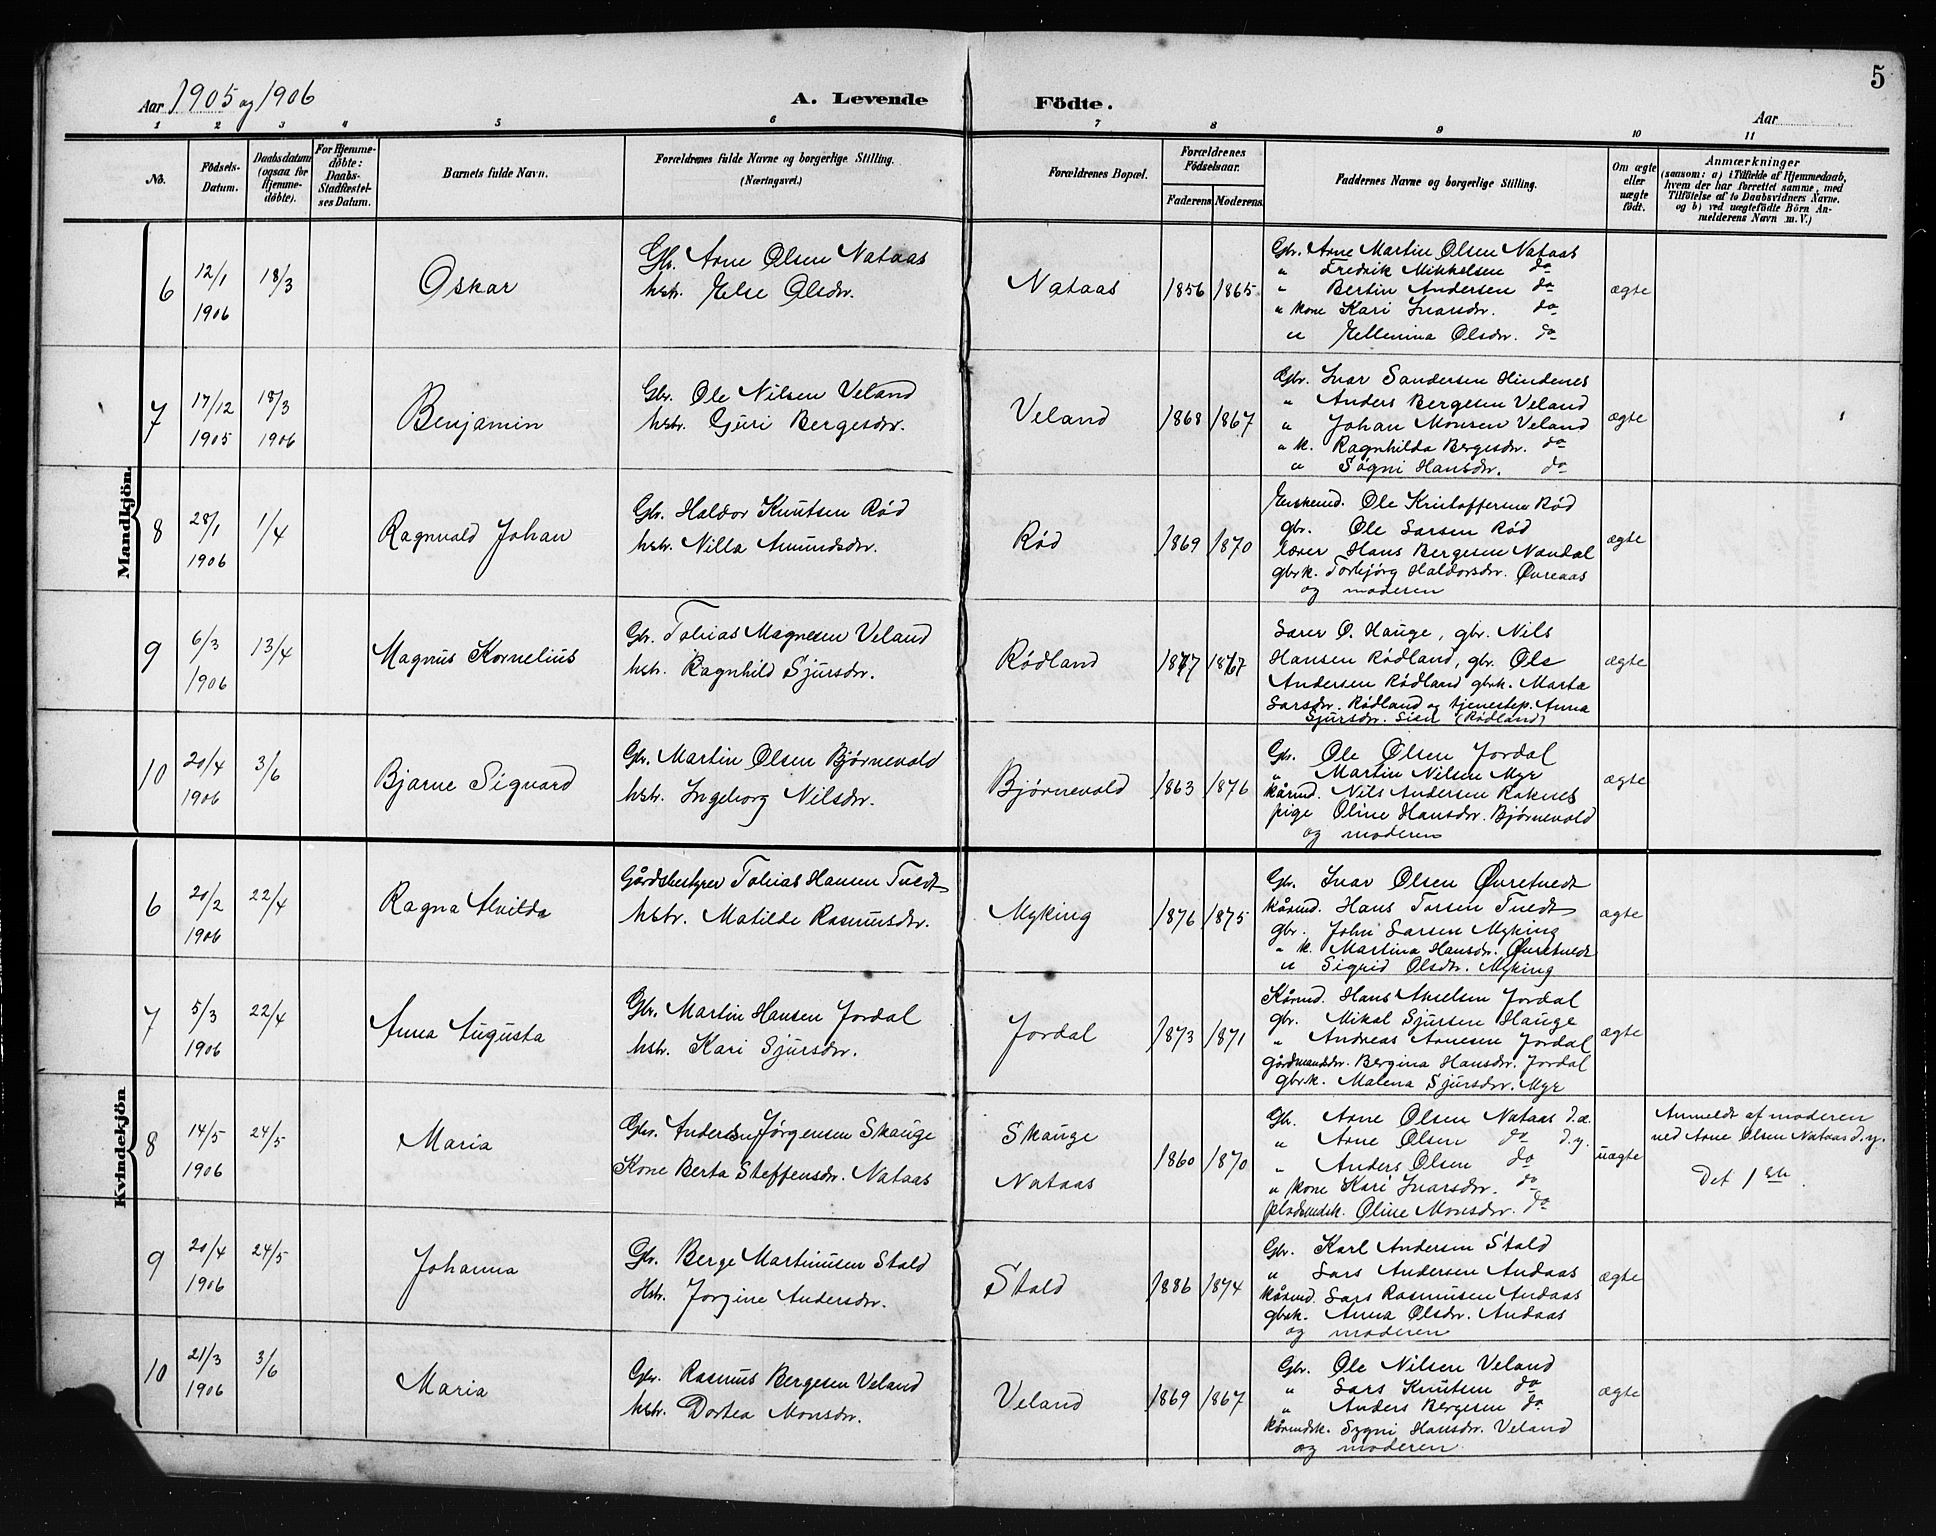 5
Aar 1905 og 1906
A. Levende Födte.
Aar
1 2 3 4 5 6 7 8 9 10 11
No.
Födsels-Datum.
Daabsdatum (ogsaa for Hjemme-döbte).
For Hjemme-döbte: Daabs-Stadfæstel-ses Datum.
Barnets fulde Navn.
Forældrenes fulde Navne og borgerlige Stilling. (Næringsvei.)
Forældrenes Bopæl.
Forældrenes Födselsaar.
Faderens. Moderens.
Faddernes Navne og borgerlige Stilling.
Om ægte eller uægte födt.
Anmærkninger
(saasom: a) i Tilfælde af Hjemmedaab,
hvem der har forrettet samme, med
Tilföielse af to Daabsvidners Navne.
og b) ved uægtefödte Börn An-
melderens Navn m. V.)
Mandkjön.
6 12/1 1906 18/3 Oskar
Gbr. Arne Olsen Nataas
hstr. Else Olsdr.
Nataas 1856 1865
Gbr. Arne Martin Olsen Nataas
" Fredrik Mikkelsen do
" Bertin Andersen do
" kone Kari Ivarsdr. do
" Ellenina Olsdr. do
ægte
7 17/12 1905 18/3 1906 Benjamin
Gbr. Ole Nilsen Veland
hstr. Guri Bergesdr.
Veland 1868 1867
Gbr. Ivar Sandersen Hindenes
" Anders Bergesen Veland
" Johan Monsen Veland
" k. Ragnhilda Bergesdr. do
" Søgni Hansdr. do
ægte
8 28/1 1906 1/4 Ragnvald Johan
Gbr. Haldor Knutsen Rød
hstr. Nilla Amundsdr.
Rød 1869 1870
Enkemd. Ole Kristoffersen Rød
gbr. Ole Larsen Rød
lærer Hans Bergesen Nøndal
gbrk. Torbjørg Haldorsdr. Øvreaas
og moderen
ægte
9 6/3 1906 13/4 Magnus Kornelius
Gbr. Tobias Magnesen Veland
hstr. Ragnhild Sjursdr.
Rødland 1877 1867
Lærer O. Hauge, gbr. Nils
Hansen Rødland, gbr. Ole
Andersen Rødland gbrk. Marta
Larsdr. Rødland og tjenestep. Anna
Sjursdr. Sien (Rødland)
ægte
10 20/4 1906 3/6 Bjarne Sigvard
Gbr. Martin Olsen Bjørnevold
hstr. Ingeborg Nilsdr.
Bjørnevold 1863 1876
Gbr. Ole Olsen Jordal
" Martin Nilsen Myr
kårmd. Nils Andersen Raknes
pige Oline Hansdr. Bjørnevold
og moderen
ægte
Kvindekjön
6 20/2 1906 22/4 Ragna Alvilda
Gårdsbestyrer Tobias Hansen Tvedt
hstr. Matilde Rasmusdr.
Myking 1876 1875
Gbr. Ivar Olsen Øvretvedt
kårmd. Hans Torsen Tvedt
gbr. John Larsen Myking
" k. Martina Hansdr. Øvretvedt
" Sigrid Olsdr. Myking
ægte
7 5/3 1906 22/4 Anna Augusta
Gbr. Martin Hansen Jordal
hstr. Kari Sjursdr.
Jordal 1873 1871
Kårmd. Hans Akselsen Jordal
gbr. Mikal Sjursen Hauge
" Andreas Arnesen Jordal
gårdmandsdr. Bergina Hansdr. Jordal
gbrk. Malena Sjursdr. Myr
ægte
8 14/5 1906 24/5 Maria
Gbr. Anders Jørgensen Skauge
Kone Berta Steffensdr. Nataas
Skauge
Nataas
1860 1870
Gbr. Arne Olsen Nataas d.æ.
" Arne Olsen do d.y.
" Anders Olsen do
" kone Kari Ivarsdr. do
pladsmdsk. Oline Monsdr. do
uægte
Anmeldt af moderen
ved Arne Olsen Nataas d.y.
Det 1ste.
9 20/4 1906 24/5 Johanna
Gbr. Berge Martinusen Stald
Hstr. Jorgine Andersdr.
Stald 1886 1874
Gbr. Karl Andersen Stald
" Lars Andersen Andaas
kårmd. Lars Rasmusen Andaas
gbrk. Anna Olsdr. Andaas
og moderen
ægte
10 21/3 1906 3/6 Maria
Gbr. Rasmus Bergesen Veland
hstr. Dortea Monsdr.
Veland 1869 1867
Gbr. Ole Nilsen Veland
" Lars Knutsen do
" Anders Bergesen do
kårmdsk. Sygni Hansdr. Veland
og moderen
ægte